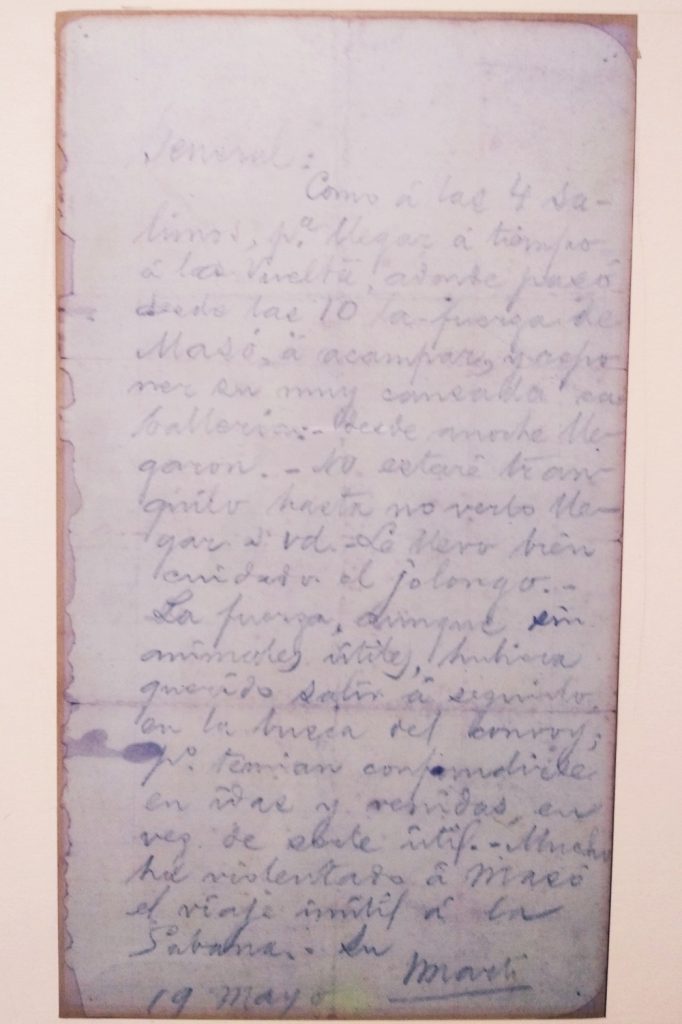 General:
Como á las 4 sa-
limos, p.ª llegar á tiempo
á la Vuelta, adonde pasó
desde las 10 la fuerza de
Masó, á acampar, y repo-
ner su muy cansada ca-
ballería.- Desde anoche lle-
garon.- No estaré tran-
quilo hasta no verlo lle-
gar á Vd.- Le llevo bien
cuidado el jolongo.-
La fuerza, aunque sin
animales útiles, hubiera
querido salir á seguirlo,
en la busca del convoy;
pº. temían confundirse
en idas y venidas, en
vez de serle útil.- Mucho
ha violentado á Masó
el viaje inútil á la
Sabana.- Su
Martí
19 Mayo